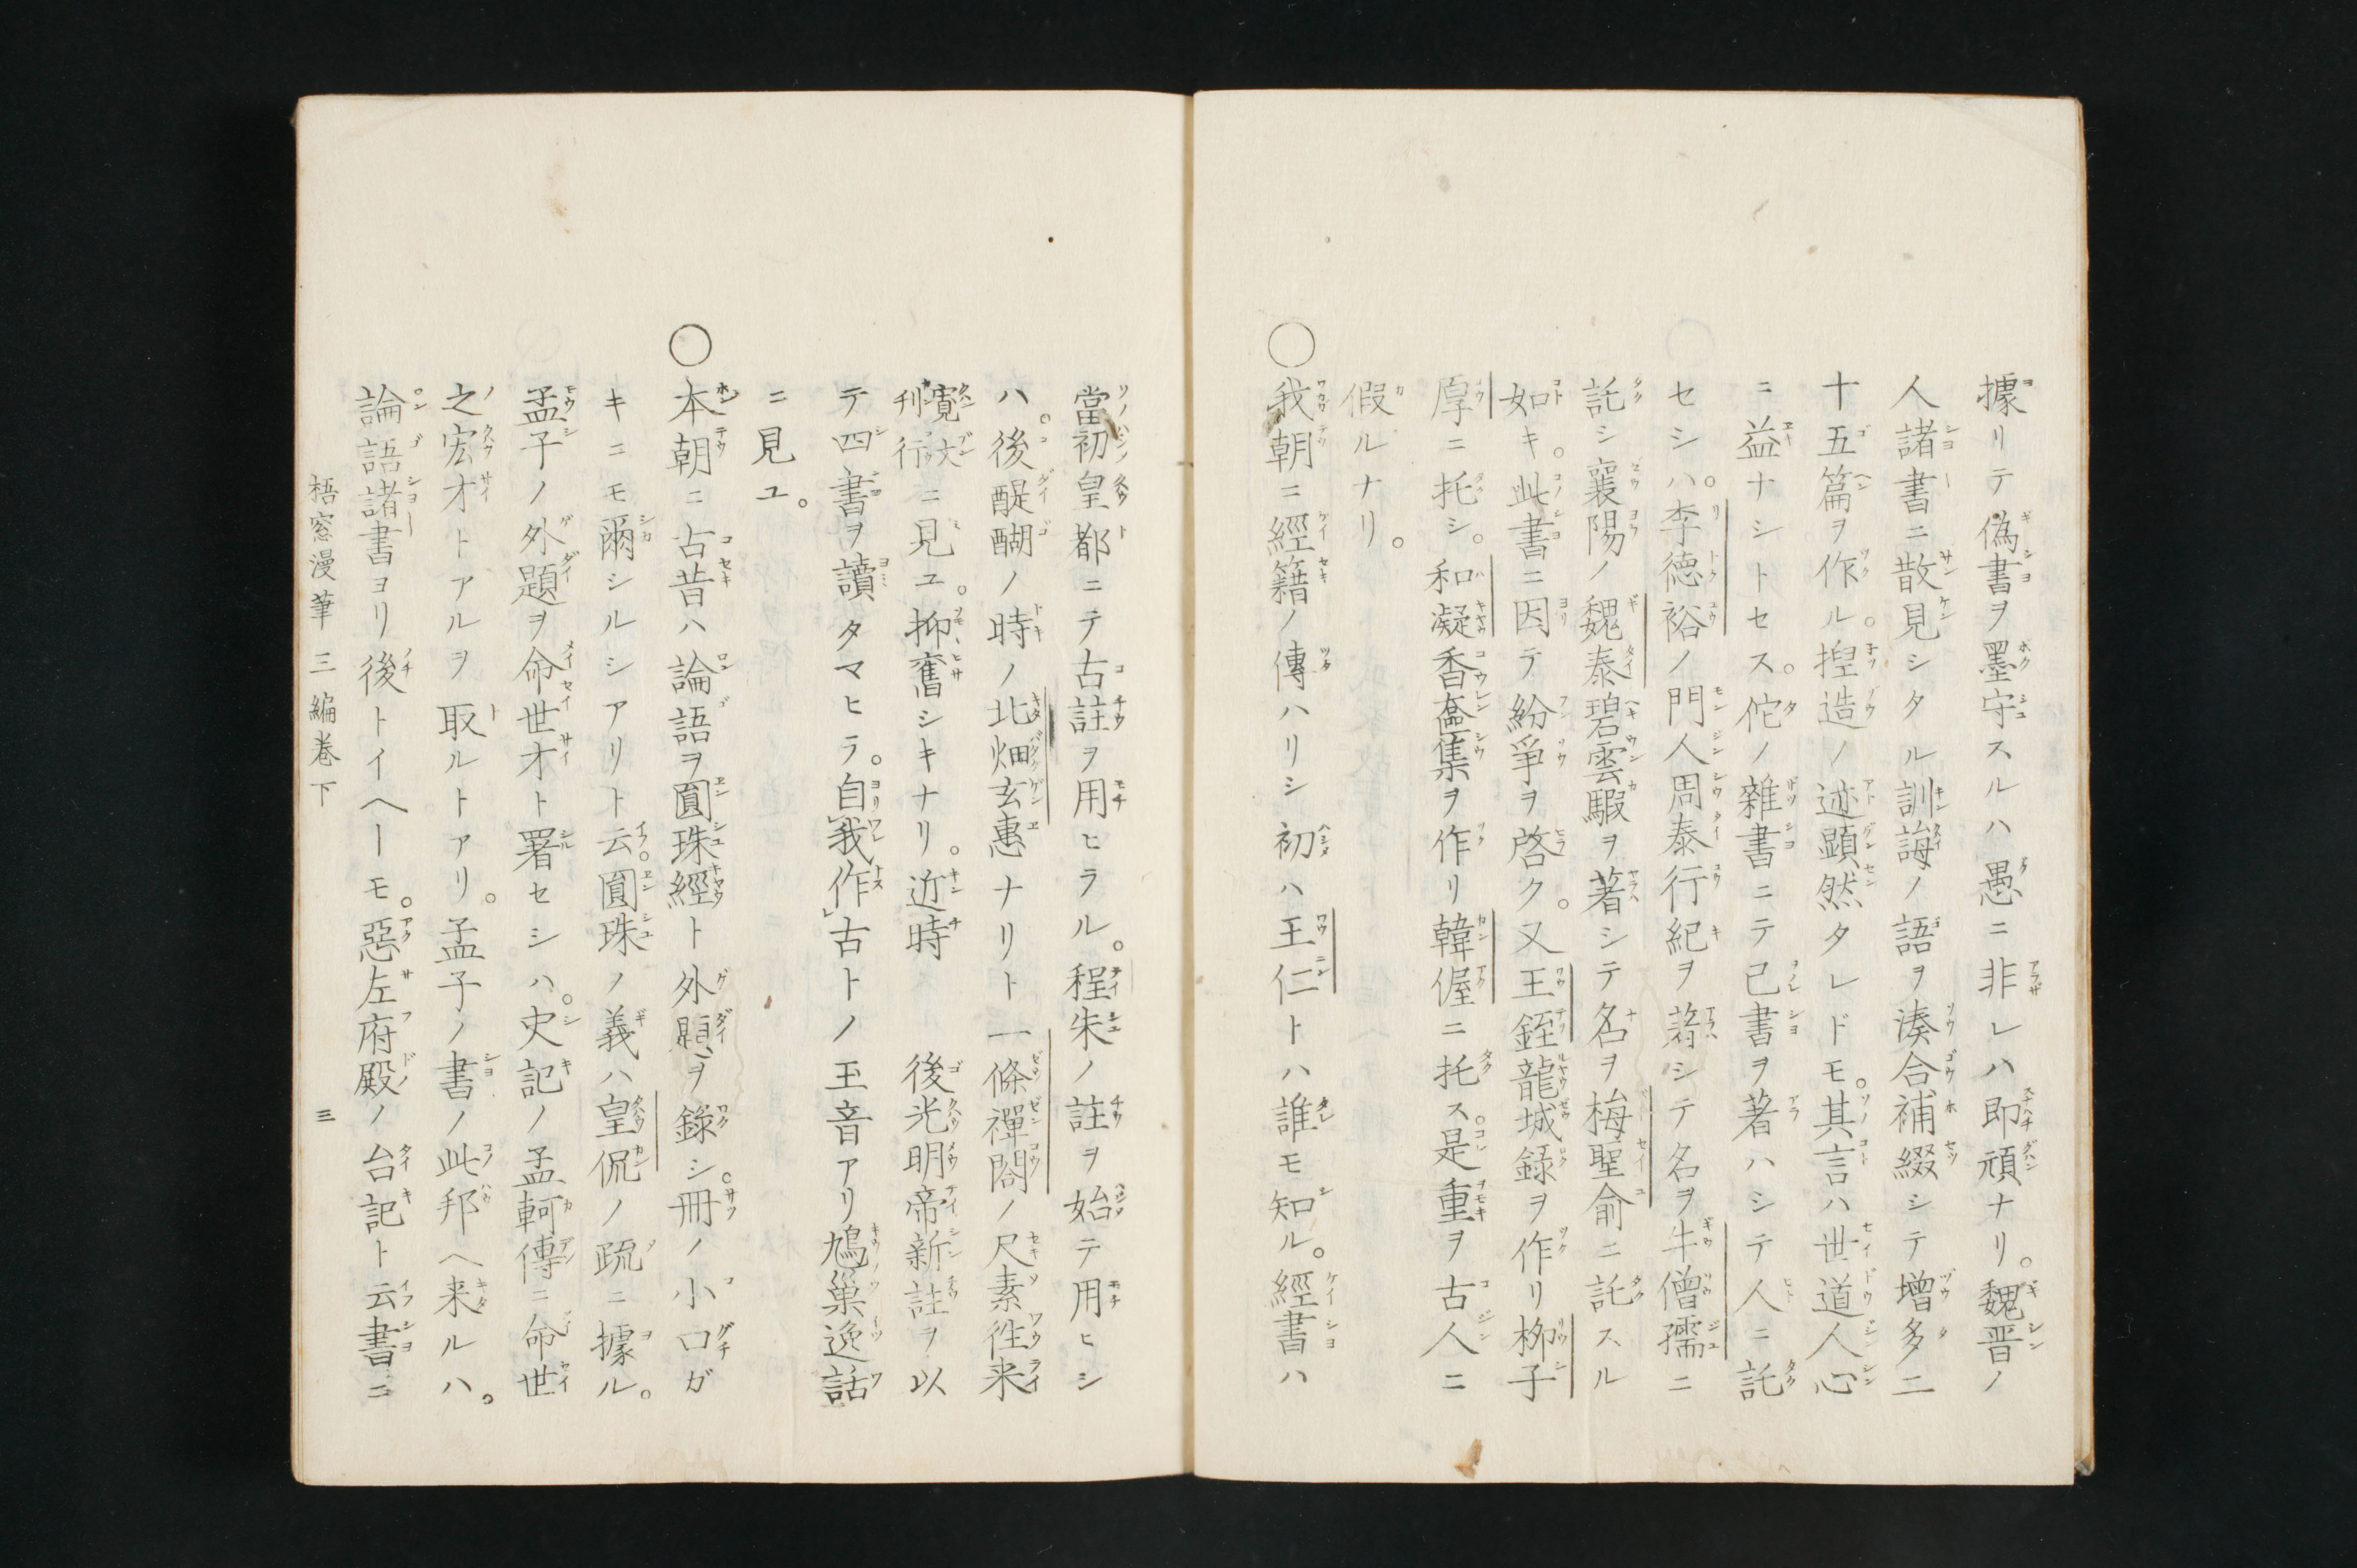 據リテ偽書ヲ墨守スルハ愚ニ非レハ即頑ナリ。魏晋ノ
人諸書ニ散見シタル訓誨ノ語ヲ湊合補綴シテ增多二
十五篇ヲ作ル。揑造ノ迹顕然タレドモ。其言ハ世道人心
ニ益ナシトセス。佗ノ雜書ニテ己書ヲ著ハシテ人ニ託
セシハ。李德裕ノ門人周泰行紀ヲ著シテ名ヲ牛僧孺ニ
託シ襄陽ノ魏泰碧雲騢ヲ著シテ名ヲ梅聖俞ニ託スル
如キ。此書ニ因テ紛爭ヲ啓ク。又王銍龍城錄ヲ作リ柳子
厚ニ托シ。和凝香奩集ヲ作リ韓偓ニ托ス。是重ヲ古人ニ
假ルナリ。
○我朝ニ經籍ノ傳ハリシ初ハ王仁トハ誰モ知ル。經書ハ
當初皇都ニテ古註ヲ用ヒラル。程朱ノ註ヲ始テ用ヒシ
ハ。後醍醐ノ時ノ北畑玄惠ナリト一條禪閤ノ尺素徃来
寛文刊行ニ見ユ。抑舊シキナリ。近時 後光明帝新註ヲ以
テ四書ヲ讀タマヒラ。自我作古トノ玉音アリ鳩巣逸話
ニ見ユ。
○本朝ニ古昔ハ論語ヲ圓珠經ト外題ヲ錄シ。冊ノ小口ガ
キニモ爾シルシアリト云。圓珠ノ義ハ皇侃ノ疏ニ據ル。
孟子ノ外題ヲ命世才ト署セシハ。史記ノ孟軻傳ニ命世
之宏才トアルヲ取ルトアリ。孟子ノ書ノ此邦ヘ来ルハ。
論語諸書ヨリ後トイヘーモ。惡左府殿ノ台記ト云書ニ
梧窓漫筆三編巻下 三